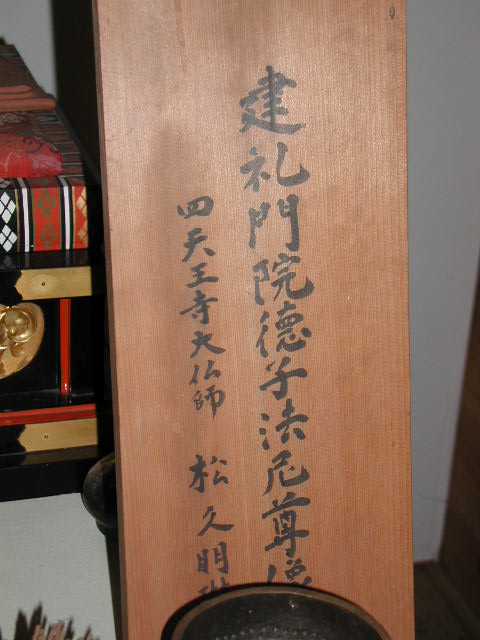 建礼門院德子法尼尊像
四天王寺大仏師 松久明琳